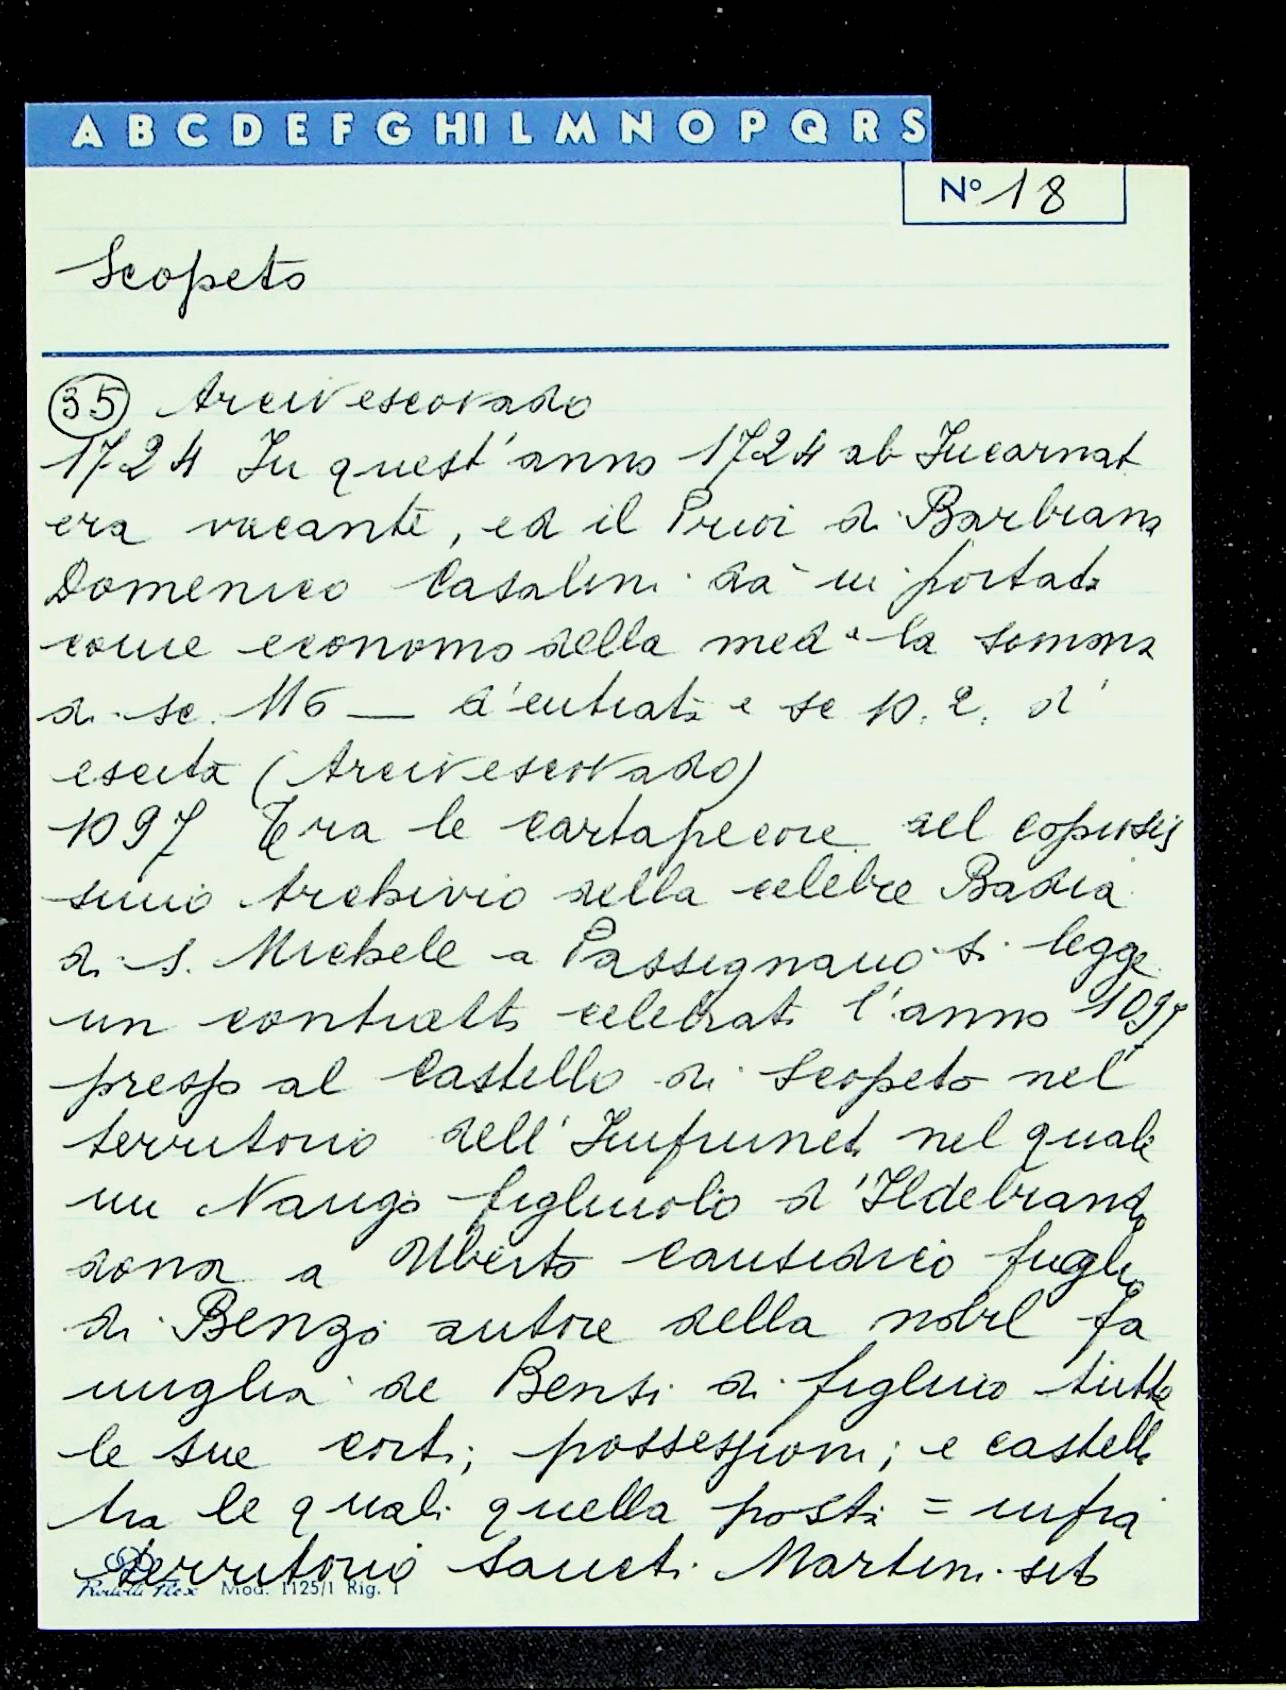 A B C D E F G HI L M N O P Q R S
N° 18
Scopeto
35 Arcivescovado
1724 In quest'anno 1724 ab Incarnat
era vacante, ed il Prior di Barbiana
Domenico Casalini dà in portata
come economo della med.a la somma
di sc. 116 — d'entrata e sc 10. 2. d'
escita (Arcivescovado)
1097 Tra le cartapecore del copiosis
simo Archivio della celebre Badia
di S. Michele a Passignano si legge
un contratto celebrato l'anno 1097
presso al Castello di Scopeto nel
territorio dell'Impruneta nel quale
un Nango figliuolo d'Ildebrando
dona a Uberto causidico figlio
di Benzo autore della nobil fa
miglia de Bensi di figlino tutte
le sue corti; possessioni; e castelli
tra le quali quella posta = infra
territorio Sancti Martini sito
Mod. 1125/1 Rig. 1